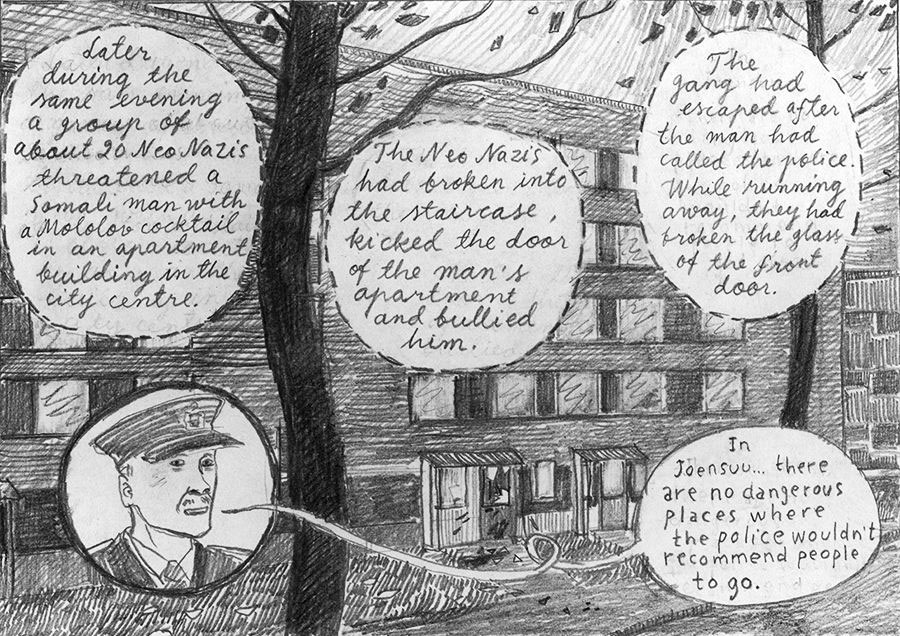 Later
during the
same evening
a group of
about 20 Neo Nazis
threatened a
Somali man with
a Mololov cocktail
in an apartment
building in the
city centre.
The Neo Nazis
had broken into
the staircase,
kicked the door
of the man's
apartment
and bullied
him.
The
gang had
escaped after
the man had
called the police.
While running
away, they had
broken the glass
of the front
door.
In
Joensuu... there
are no dangerous
places where
the police wouldn't
recommend people
to go.